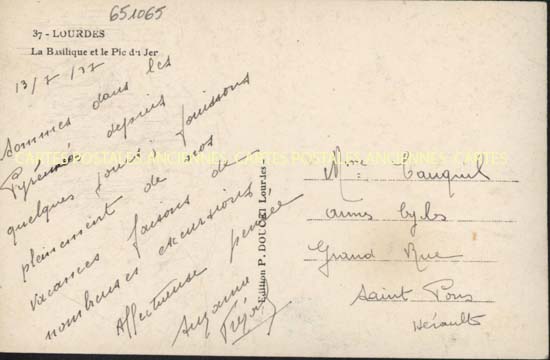 651065
37 - LOURDES
La Basilique et le Pic du Jer
13/7/37
Sommes dans les
Pyrénées depuis
quelques jours jouissons
pleinement de nos
vacances faisons de
nombreuses excursions
Affectueuse pensée
Suzanne
Edition P. DOUCET Lourdes
CARTES POSTALES ANCIENNES CARTES POSTALES ANCIENNES CARTES
Mme Cauquil
Grand Rue
Saint Pons
Hérault